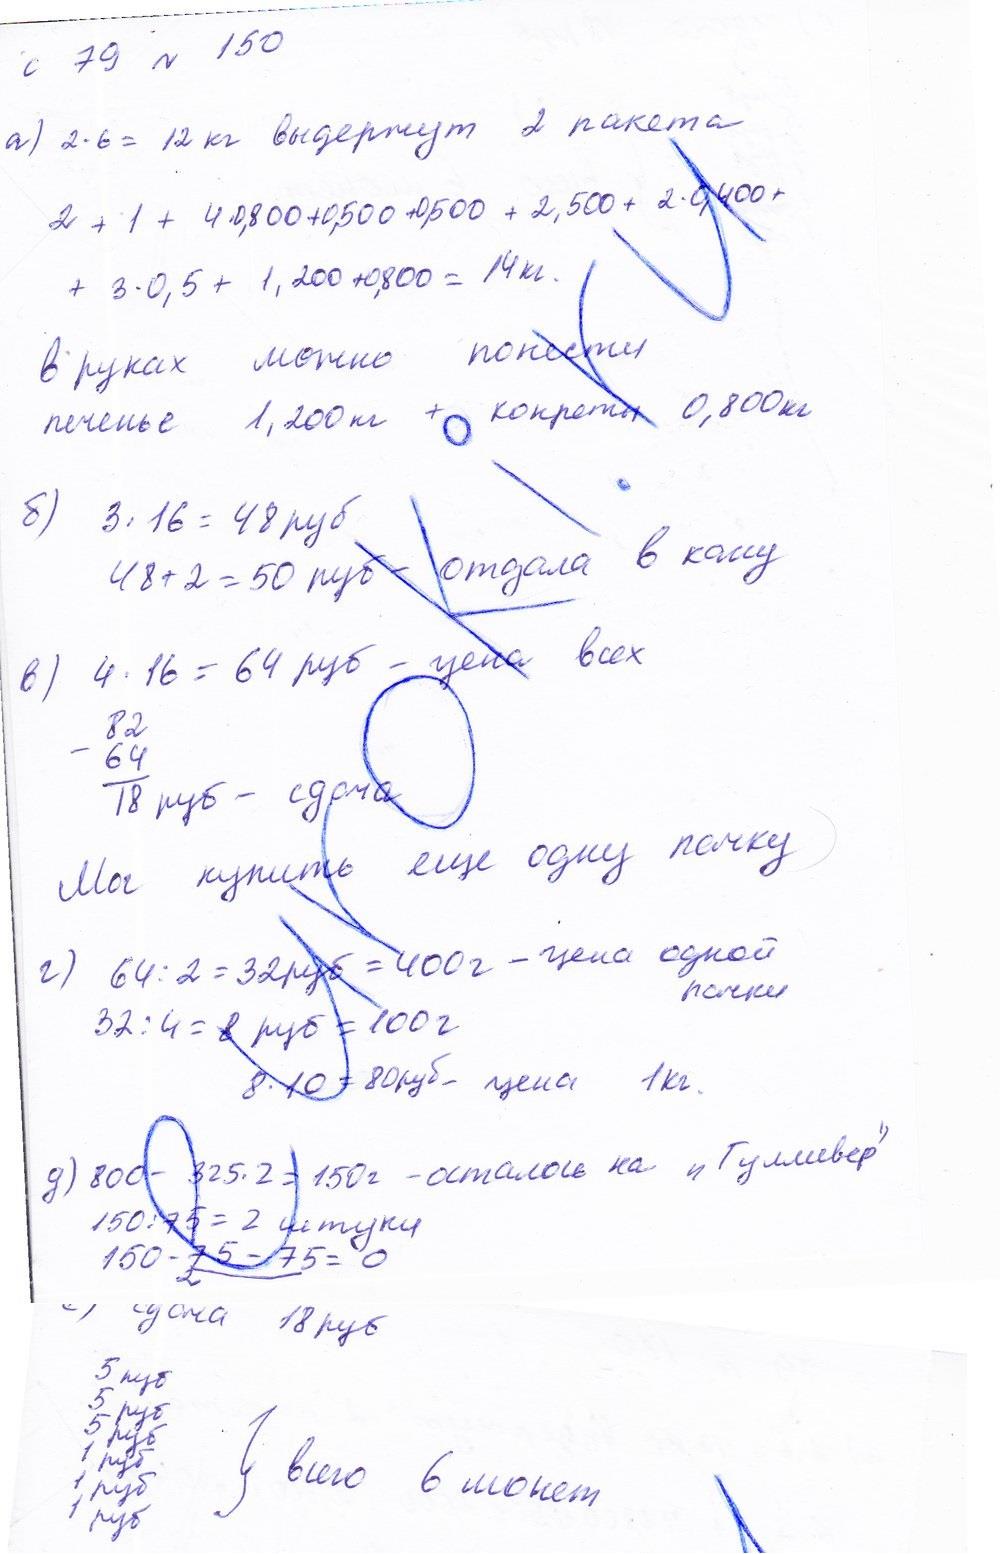 с 79 N 150
а) 2·6 = 12 кг выдержут 2 пакета
2 + 1 + 4·0,800+0,500+0,500 + 2,500 + 2·0,400+
+ 3·0,5 + 1,200+0,800 = 14 кг.
в руках можно понести
печенье 1,200 кг + конфеты 0,800 кг
б) 3·16 = 48 руб
48+2 = 50 руб - отдала в кассу
в) 4·16 = 64 руб - цена всех
82
- 64
18 руб - сдача
Мог купить еще одну пачку
г) 64:2 = 32 руб = 400 г - цена одной
пачки
32:4 = 8 руб = 100 г
8·10 = 80 руб - цена 1 кг.
д) 800 - 325·2 = 150 г - осталось на "Гулливер"
150:75 = 2 штуки
150 - 75 - 75 = 0
2
е) сдача 18 руб
5 руб
5 руб
5 руб
1 руб
1 руб
1 руб
} всего 6 монет
UROKI.RU